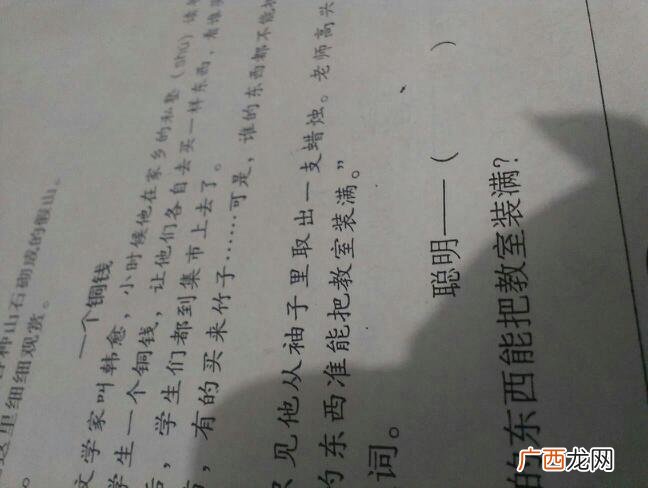 各种山石砌成的假山。
这里细细观赏。
一个铜钱
文学家叫韩愈，小时候他在家乡的私塾（shú）读
学生一个铜钱，让他们各自去买一样东西，看谁买
后，学生们都到集市上去了。
前，有的买来竹子……可是，谁的东西都不能把
只见他从袖子里取出一支蜡烛。老师高兴
的东西准能把教室装满。”
词。
聪明——（ ）
的东西能把教室装满？
广西龙网